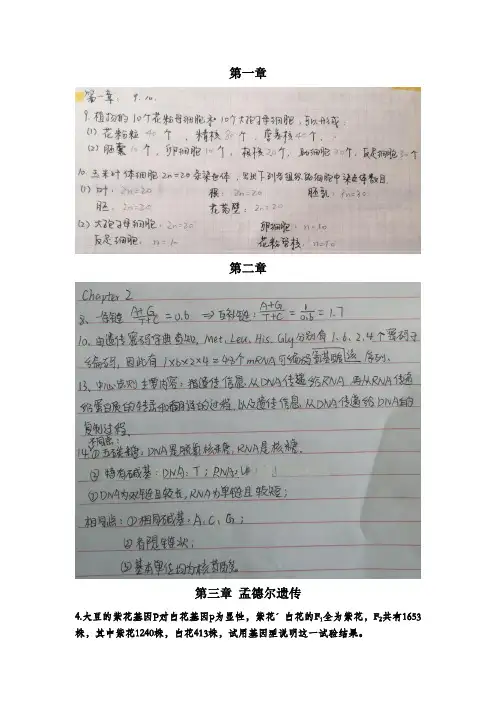 第一章
第一章: 9. 10.
9. 植物的10个花粉母细胞和10个大孢子母细胞,可以形成:
(1) 花粉粒 40 个 , 精核 80 个 , 营养核 40 个 .
(2) 胚囊 10 个 , 卵细胞 10 个 , 极核 20 个 , 助细胞 20 个 , 反足细胞 30 个
10. 玉米叶体细胞 2n=20 条染色体 , 写出下列各组织的细胞中染色体数目.
(1) 叶: 2n=20 根: 2n=20 胚乳: 3n=30
胚: 2n=20 花药壁: 2n=20
(2) 大孢子母细胞: 2n=20 卵细胞: n=10
反足细胞: n=10 花粉管核: n=10
第二章
Chapter 2
8、一条链 A+G/T+C = 0.6 ⇒ 互补链: A+G/T+C = 1/0.6 = 1.7
10、由遗传密码字典查知, Met、Leu、His、Gly分别有1、6、2、4个密码子
编码, 因此有 1×6×2×4=48个mRNA可编码 序列.
13、中心法则主要内容: 指遗传信息从DNA传递给RNA, 再从RNA传递
给蛋白质的转录和翻译的过程, 以及遗传信息从DNA传递给DNA的
复制过程.
不同点:
14. ① 五碳糖: DNA是脱氧核糖, RNA是核糖,
② 特有碱基: DNA: T ; RNA: U
③ DNA为双链且较长, RNA为单链且较短;
相同点: ① 相同碱基: A、C、G ;
② 者 链状;
③ 基本单位均为核苷酸.
第三章 孟德尔遗传
4.大豆的紫花基因P对白花基因p为显性，紫花´ 白花的F₁全为紫花，F₂共有1653
株，其中紫花1240株，白花413株，试用基因型说明这一试验结果。